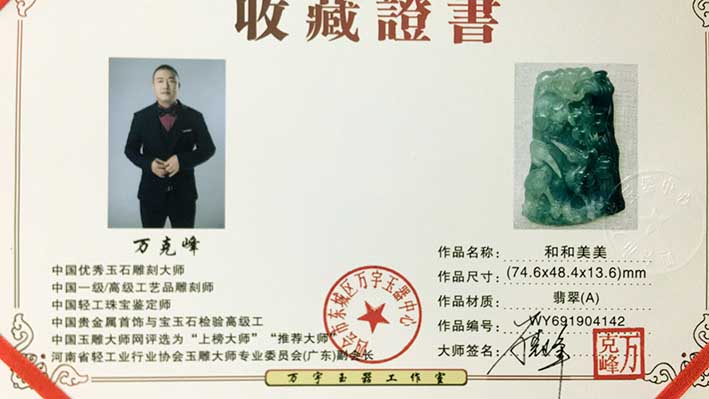 收藏證書
万克峰
中国优秀玉石雕刻大师
中国一级/高级工艺品雕刻师
中国轻工珠宝鉴定师
中国贵金属首饰与宝玉石检验高级工
中国玉雕大师网评选为“上榜大师”“推荐大师”
河南省轻工业行业协会玉雕大师专业委员会(广东)副会长
四会市东城区万宇玉器中心
作品名称: 和和美美
作品尺寸: (74.6x48.4x13.6)mm
作品材质: 翡翠(A)
作品编号: WY691904142
大师签名:
万克峰
万宇玉器工作室